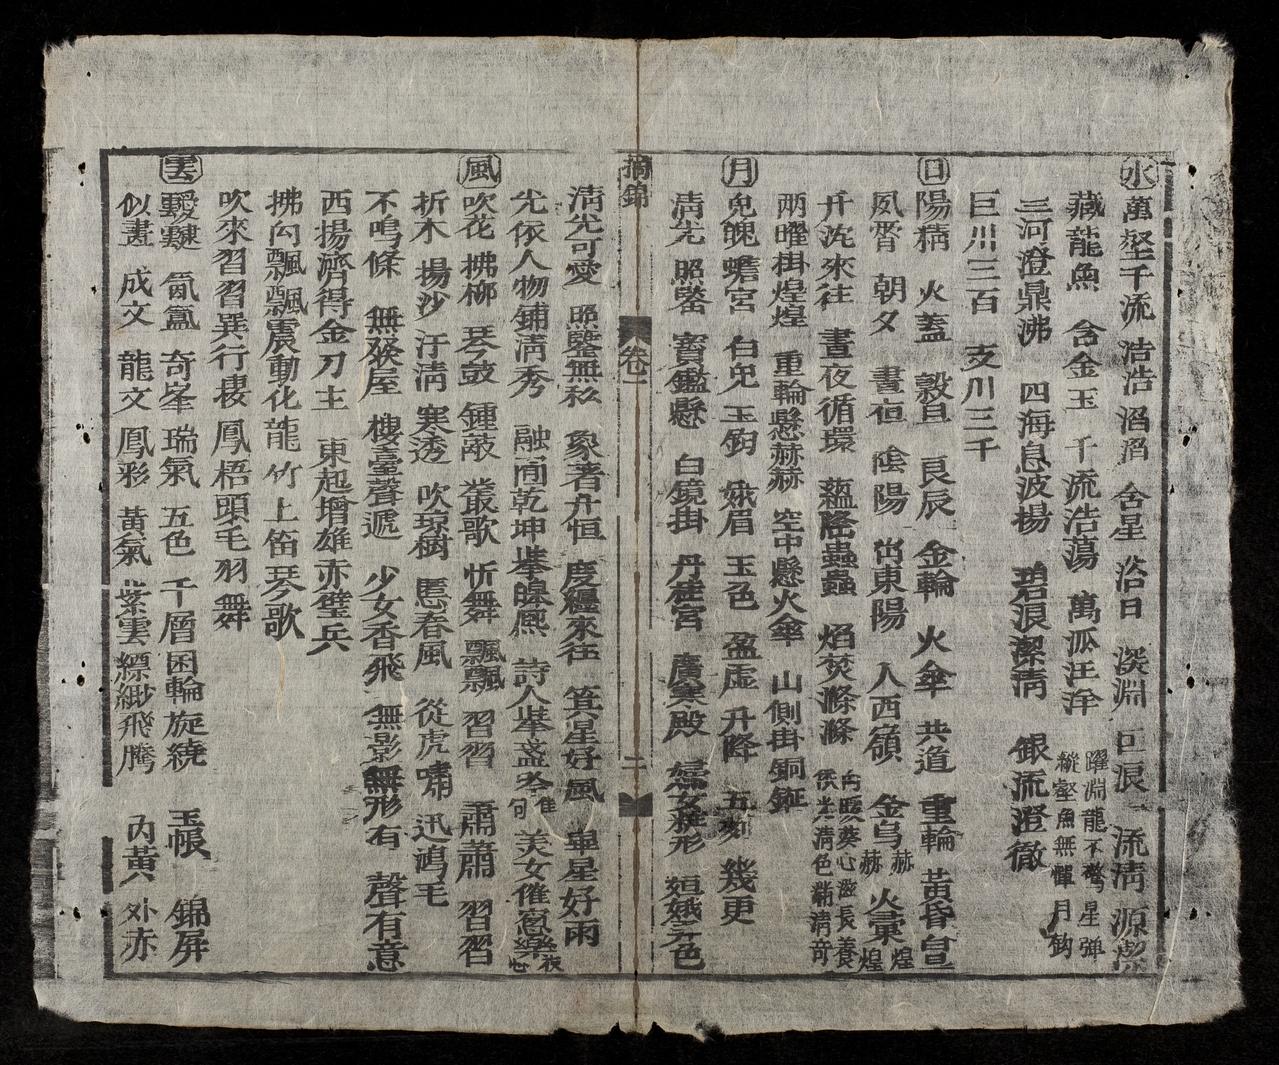 水 萬壑千流 浩浩 滔滔 含星 浴日 深淵 巨浪 流清 源潔
藏龍魚 含金玉 千流浩蕩 萬派汪洋 躍淵龍不驚星弾 縱壑魚無憚月鈎
三河澄鼎沸 四海息波揚 碧浪潔清 銀流澄徹
巨川三百 支川三千
日 陽精 火蓋 榖旦 良辰 金輪 火傘 共道 重輪 黃昏
夙霄 朝夕 晝夜 陰陽 東陽 入西嶺 金烏赫赫 火彙煌煌
升沈來往 晝夜循環 蘊隆蟲蟲 焰焚滌滌 向照葵心滋長養 清色精清奇
兩曜掛煌煌 重輪懸赫赫 空中懸火傘 山側掛銅鉦
月 兔魄 蟾宮 白兔 玉鈎 娥眉 玉色 盈虚 升降 五刻 幾更
清光 照鑒 寳鑑懸 白鏡掛 丹桂宮 廣寒殿 形 姮娥 色
摘錦 卷一 二
清光可愛 照鑒無私 象著升恒 慶纒來往 箕星好風 畢星好雨
光依人物鋪清秀 融 乾坤皞熙 詩人举盞 句 美女催 樂
風 吹花 拂柳 琴鼓 鍾敲 叢歌 忻舞 飄飄 習習 肅肅 習習
折木 揚沙 汙清 寒透 吹瓊樹 春風 從虎嘯 迅鴻毛
不鳴條 無發屋 樓臺聲遞 少女香飛 無影無形有 聲有意
西揚濟得金刀主 東起增雄赤璧兵
拂向飄飄震動化龍竹上笛琴歌
吹來習習巽行樓鳳梧頭毛羽舞
雲 靉靆 氤氳 奇峯 瑞氣 五色 千層 囷輪 旋繞 玉帳 錦屏
似畫 成文 龍文 鳳彩 黃氣 紫雲 縹緲 飛騰 内黃 外赤